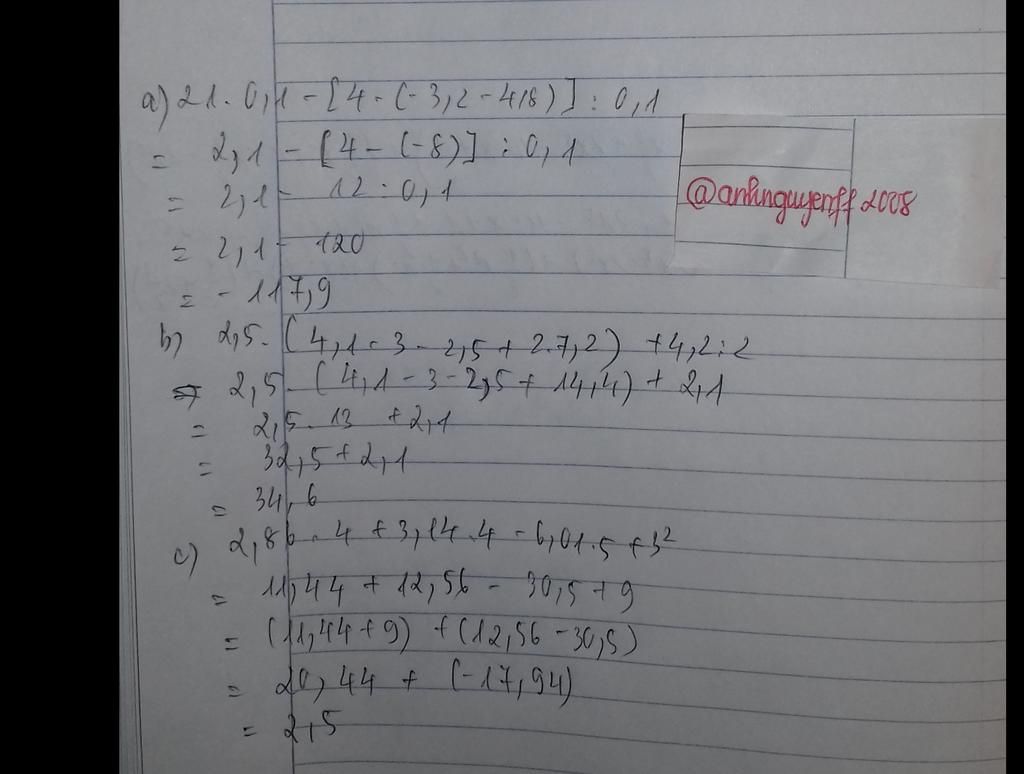 a) 21. 0,1 - [4 - (-3,2 - 4,8)] : 0,1
= 2,1 - [4 - (-8)] : 0,1
= 2,1 - 12 : 0,1
@anhnguyenff2008
= 2,1 - 120
= - 117,9
b) 2,5. (4,1 - 3 - 2,5 + 2.7,2) + 4,2 : 2
= 2,5. (4,1 - 3 - 2,5 + 14,4) + 2,1
= 2,5. 13 + 2,1
= 32,5 + 2,1
= 34,6
c) 2,86. 4 + 3,14.4 - 6,01.5 + 3²
= 11,44 + 12,56 - 30,5 + 9
= (11,44 + 9) + (12,56 - 30,5)
= 20,44 + (-17,94)
= 2,5